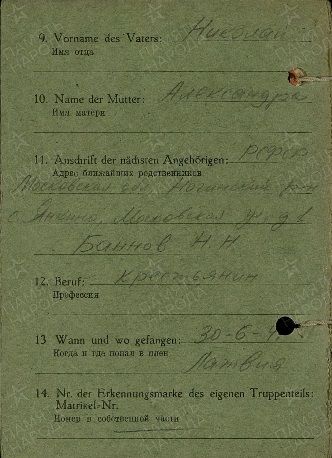 9. Vorname des Vaters: Николай
Имя отца
10. Name der Mutter: Александра
Имя матери
11. Anschrift der nächsten Angehörigen: РСФСР
Адрес ближайших родственников
Московская обл. Ногинский р-н
Московская
Баннов Н. Н.
12. Beruf: крестьянин
Профессия
13 Wann und wo gefangen: 30-6-4
Когда и где попал в плен
Латвия
14. Nr. der Erkennungsmarke des eigenen Truppenteils:
Matrikel-Nr.
Номер в собственной части